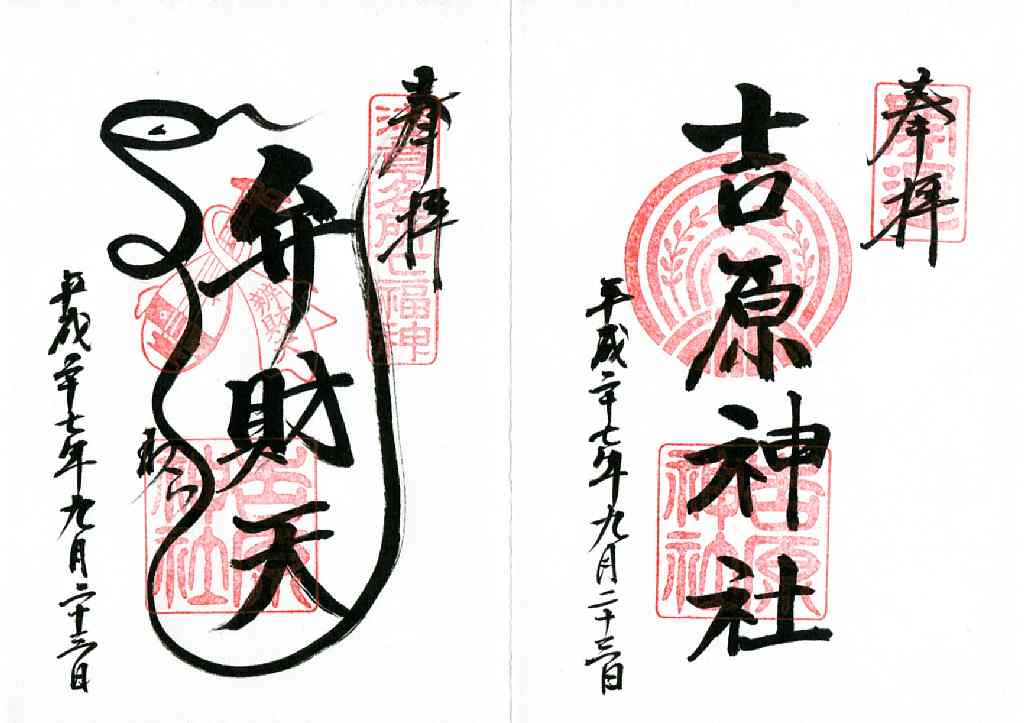 奉拝
吉原神社
平成二十七年九月二十三日
吉原神社
奉拝
浅草名所七福神
弁財天
辨財天
平成二十七年九月二十三日
吉原神社